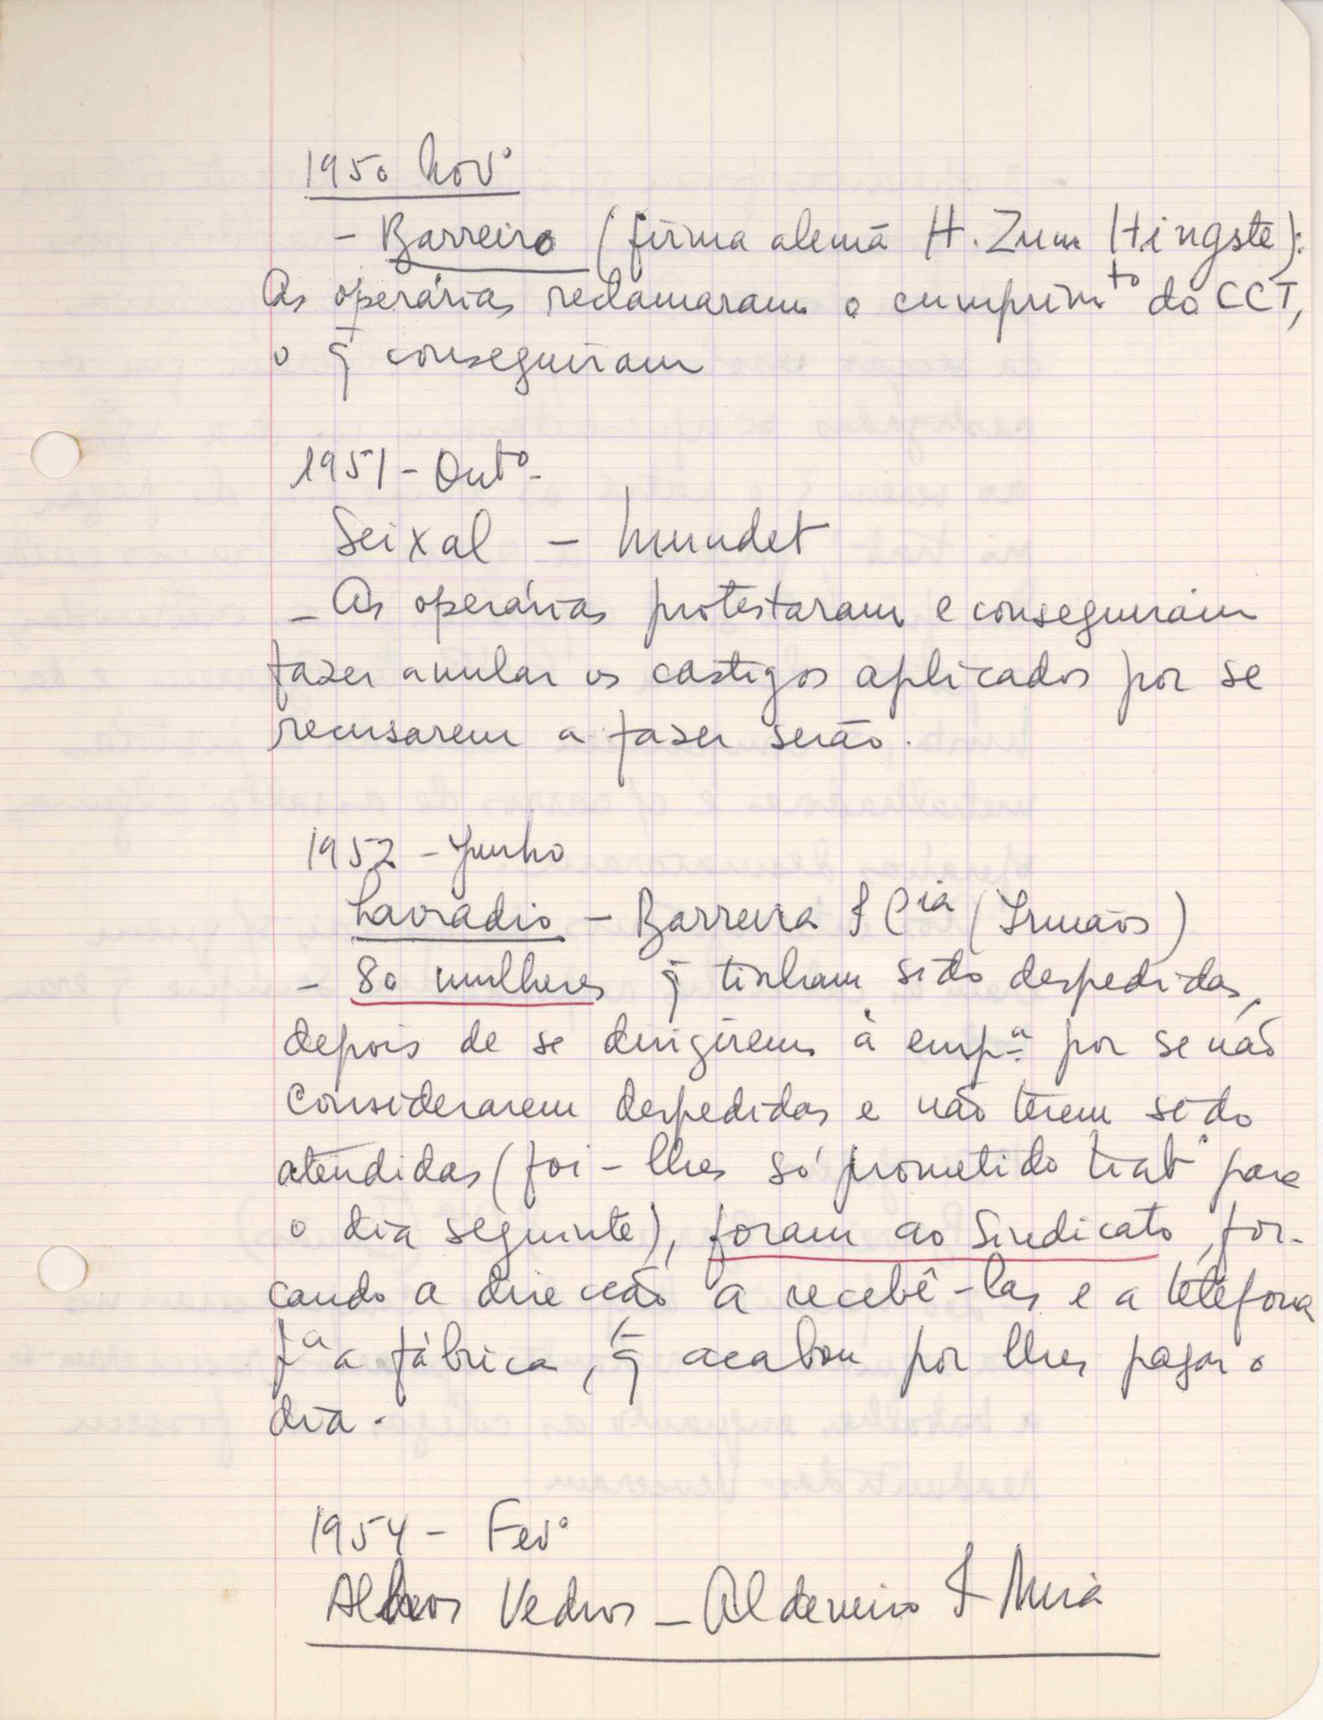 1950 Novº
- Barreiro (firma alemã H. Zum Hingste):
As operárias reclamaram o cumprimto do CCT,
o q̄ conseguiram
1951 - Outº -
Seixal - Mundet
- As operárias protestaram e conseguiram
fazer anular os castigos aplicados por se
recusarem a fazer serão.
1952 - Junho
Lavradio - Barreira & Cia (Irmãos)
- 80 mulheres q̄ tinham sido despedidas,
depois de se dirigirem à empª por se não
considerarem despedidas e não terem sido
atendidas (foi-lhes só prometido trabº para
o dia seguinte), foram ao Sindicato, for-
cando a direcção a recebê-las e a telefona
pª a fábrica, q̄ acabou por lhes pagar o
dia.
1954 - Fevº
Alhos Vedros - & Mira